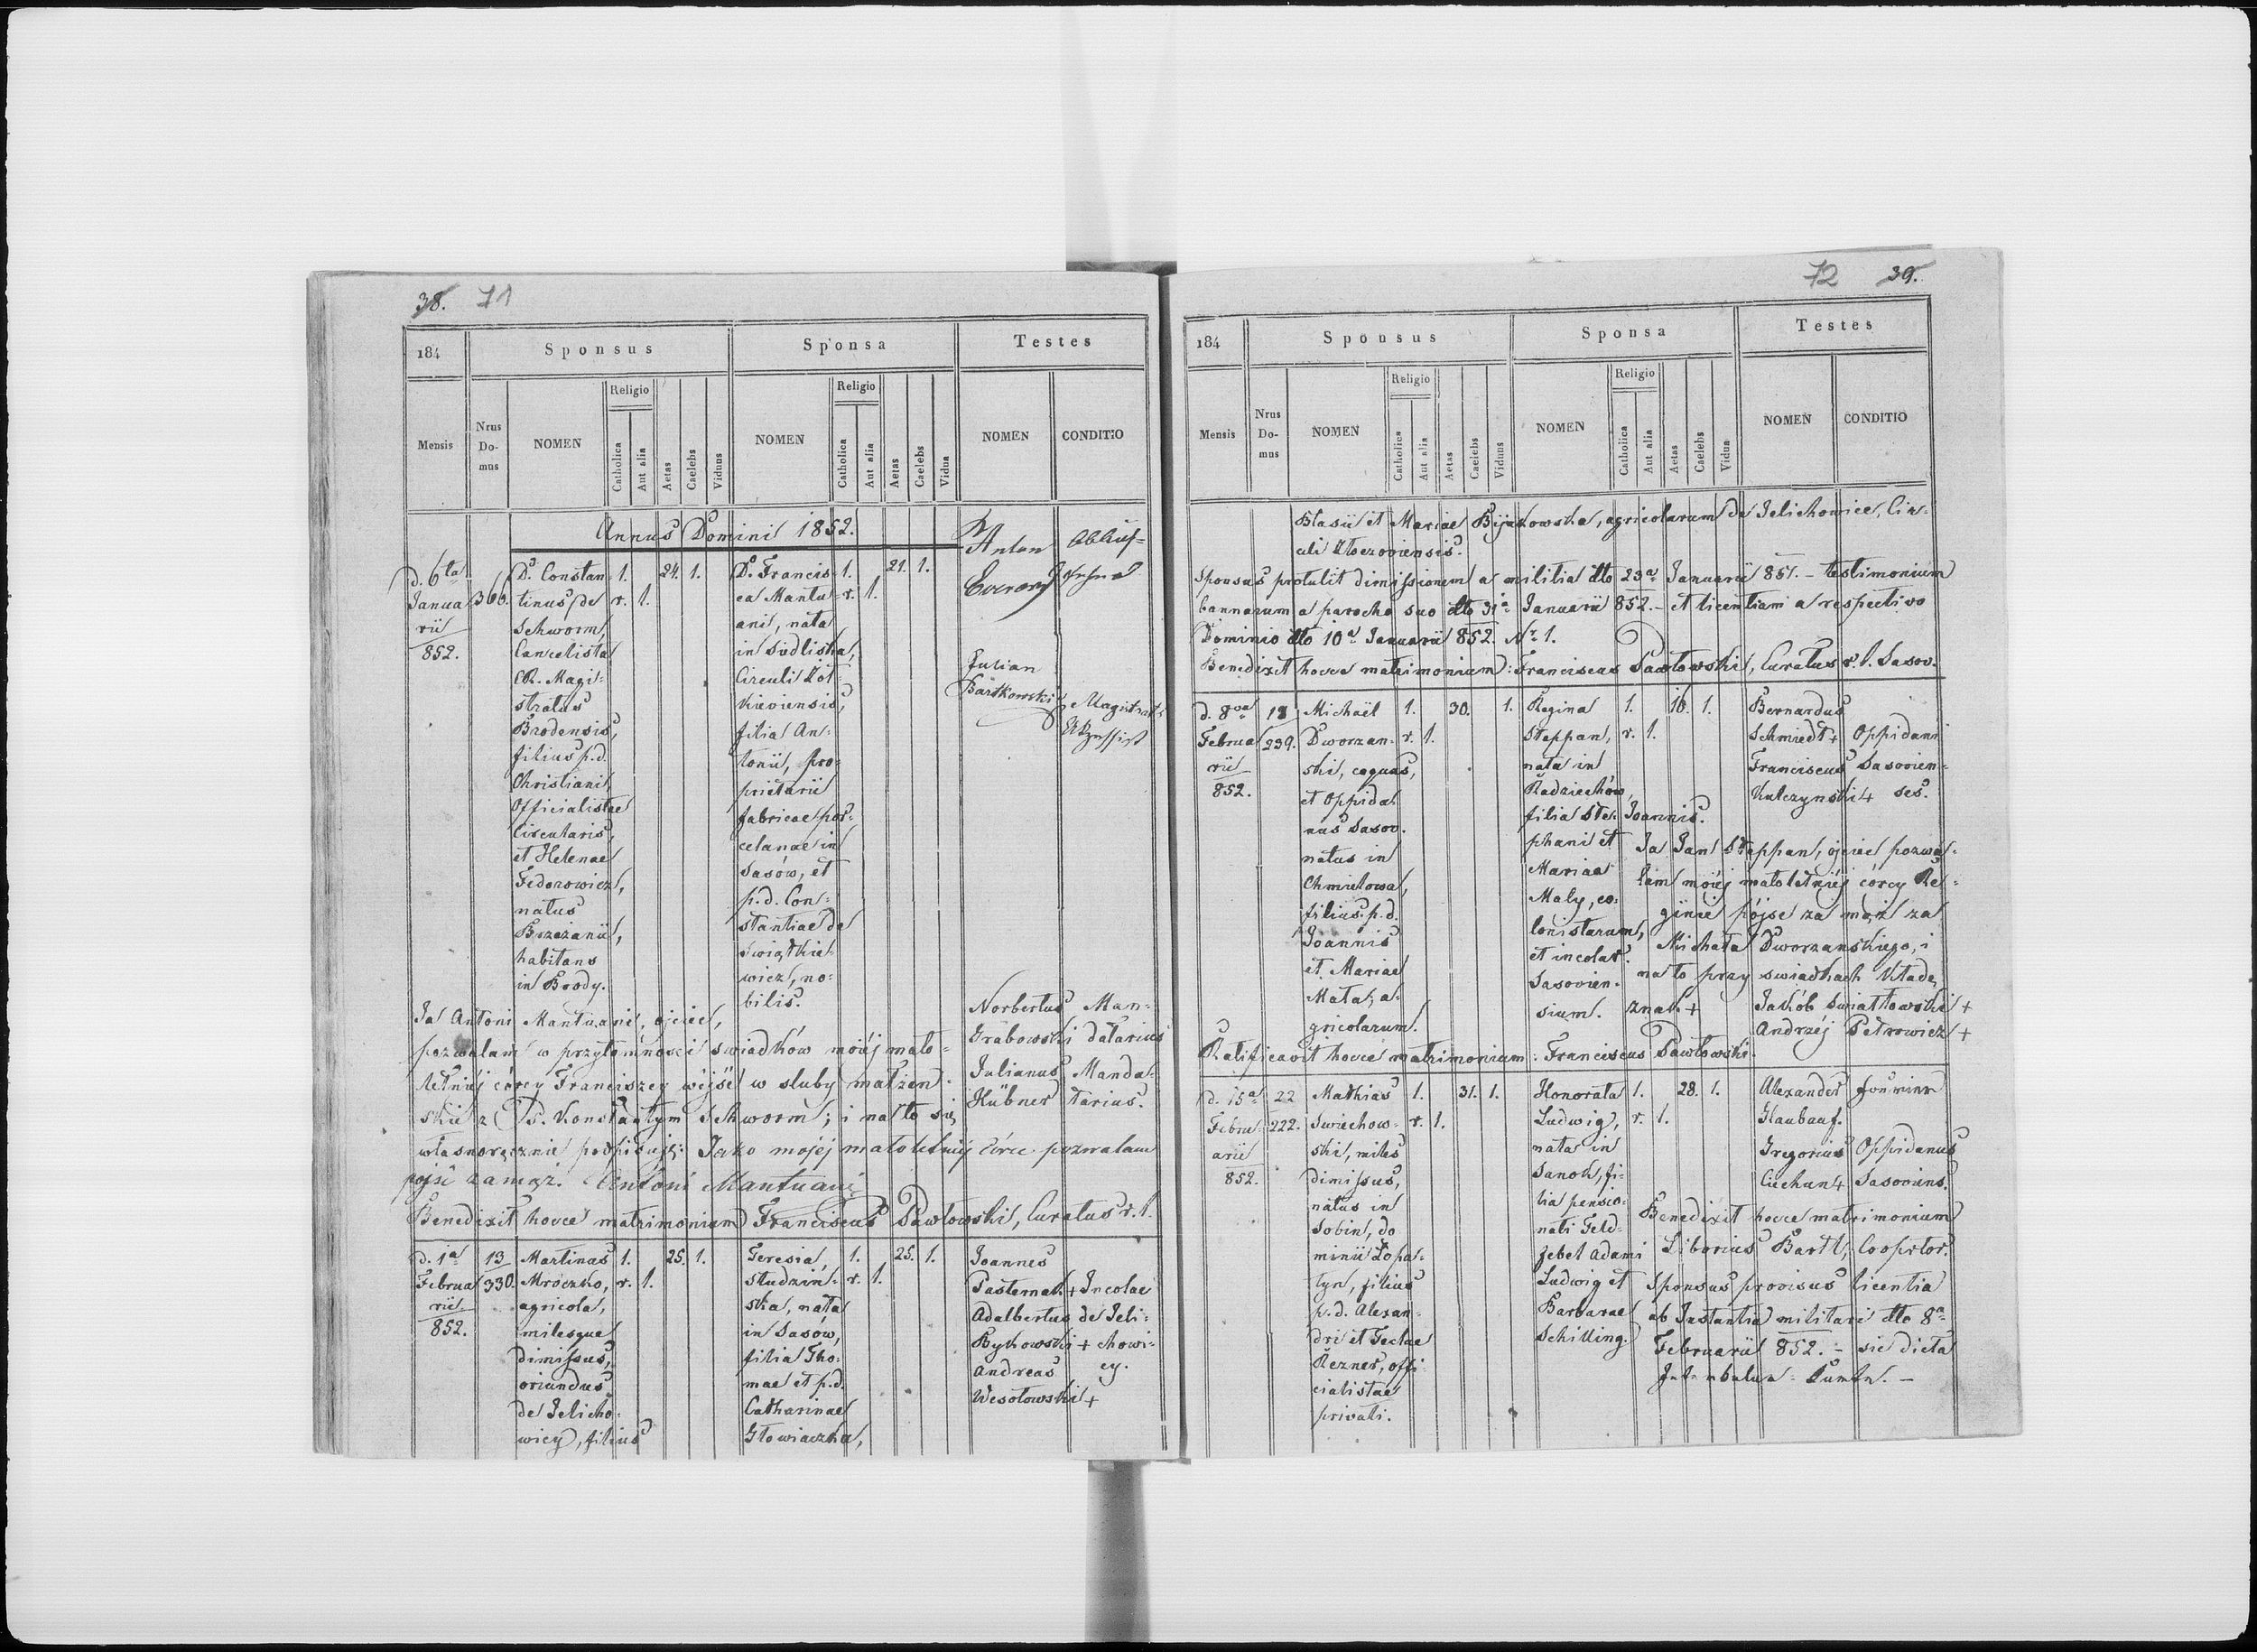 38. 71
184
Sponsus
Sponsa
Testes
Mensis
Nrus Do- mus
NOMEN
Religio
Catholica
Aut alia
Aetas
Caelebs
Viduus
NOMEN
Religio
Catholica
Aut alia
Aetas
Caelebs
Vidua
NOMEN
CONDITIO
Annus Domini 1852.
d. 6ta
Janua
rii
852.
360.
D. Constan
tinus de
Schworm,
Cancelista
CR. Magi-
stratus
Brodensis,
filius p.d.
Christiani,
Officialistae
Circularis,
et Helenae
Fedorowicz,
natus
Brzezanii,
habitans
in Brody.
1.
r. 1.
24. 1.
D. Francis
ca Mantu-
ani, nata
in
Circuli Żół-
kieviensis,
filia An-
tonii, pro-
prietarii
fabricae por-
celanae in
Sasów, et
p.d. Con-
stantiae de
Swiątkie-
wicz, no-
bilis.
1.
r. 1.
21. 1.
Anton
Julian
Bartkowski
Magistrats
Norbertus Man-
Grabowski datarius
Julianus Manda-
Hübner tarius.
Ja Antoni Mantuani, ojciec,
pozwalam w przytomności swiadków moiéj mało-
letniéj córcy Franciszcy wejść w sluby małżeń-
skie z P. Konstantym Schworm; i na to się
własnoręcznie podpisuję: Jako mojéj małoletniéj córce pozwalam
pojść zamąż. Antoni Mantuani
Benedixit hocce matrimonium Franciscus Pawłowski, Curatus r.l.
d. 1a
Februa
rii
852.
13
330.
Martinus
Mroczko,
agricola,
milesque
dimissus,
oriundus
de Jelicho-
wicy, filius
1.
r. 1.
25. 1.
Teresia,
Studzin-
ska, nata
in Sasów,
filia Tho-
mae et p.d.
Catharinae
Głowiaczka,
1.
r. 1.
25. 1.
Joannes
Pasternak + Incolae
Adalbertus de Jeli-
Bykowski + chowi-
Andreas cy.
Wesołowski +
72 39.
184
Sponsus
Sponsa
Testes
Mensis
Nrus Do- mus
NOMEN
Religio
Catholica
Aut alia
Aetas
Caelebs
Viduus
NOMEN
Religio
Catholica
Aut alia
Aetas
Caelebs
Vidua
NOMEN
CONDITIO
Blasii et Mariae Bijakowska, agricolarum de Jelichowice, Cir-
culi Złoczoviensis.
Sponsus protulit dimissionem a militia dto 23a Januarii 851. - testimonium
bannorum a parocho suo dto 31a Januarii 852. - et licentiam a respectivo
Dominio dto 10a Januarii 852. Nr. 1.
Benedixit hocce matrimonium: Franciscus Pawłowski, Curatus r.l. Sasov.
d. 8va
Februa
rii
852.
18
239.
Michaël
Dworzan-
ski, coquus,
et Oppida-
nus Sasov.
natus in
Chmielowa,
filius p.d.
Joannis
et Mariae
Matał, a-
gricolarum.
1.
r. 1.
30. 1.
Regina
Steppan,
nata in
Radziechów,
filia Ste- Joannis.
phani et
Mariae
Maly, co-
lonistarum,
et incolar.
Sasovien-
sium.
1.
r. 1.
16. 1.
Bernardus
Schmiedt + Oppidani
Franciscus Sasovien-
Kulczynski + ses.
Ja Jan Steppan, ojciec pozwa-
lam moiéj małoletniéj córcy Re-
ginie pójsc za mąż za
Michała Dworzanskiego, i
na to przy swiadkach kładę
znak +
Jakób Swiatłowski +
Andrzéj Petrowicz +
Ratificavit hocce matrimonium: Franciscus Pawłowski.
d. 15a
Febru-
arii
852.
22
222.
Mathias
Swiechow-
ski, miles
dimissus,
natus in
Sobin, do
minii Łopa-
tyn, filius
p.d. Alexan-
dri et Teclae
Rezner, offi-
cialistae
privati.
1.
r. 1.
31. 1.
Honorata
Ludwig,
nata in
Sanok, fi-
lia pensio-
nati Feld-
zebel Adami
Ludwig et
Barbarae
Schilling.
1.
r. 1.
28. 1.
Alexander
Glaubauf.
Gregorius Oppidanus
Ciechan + Sasoviens.
Benedixit hocce matrimonium
Liborius Bartl, Cooprtor.
Sponsus provisus licentia
ab Instantia militari dto 8a
Februarii 852. - sic dicta